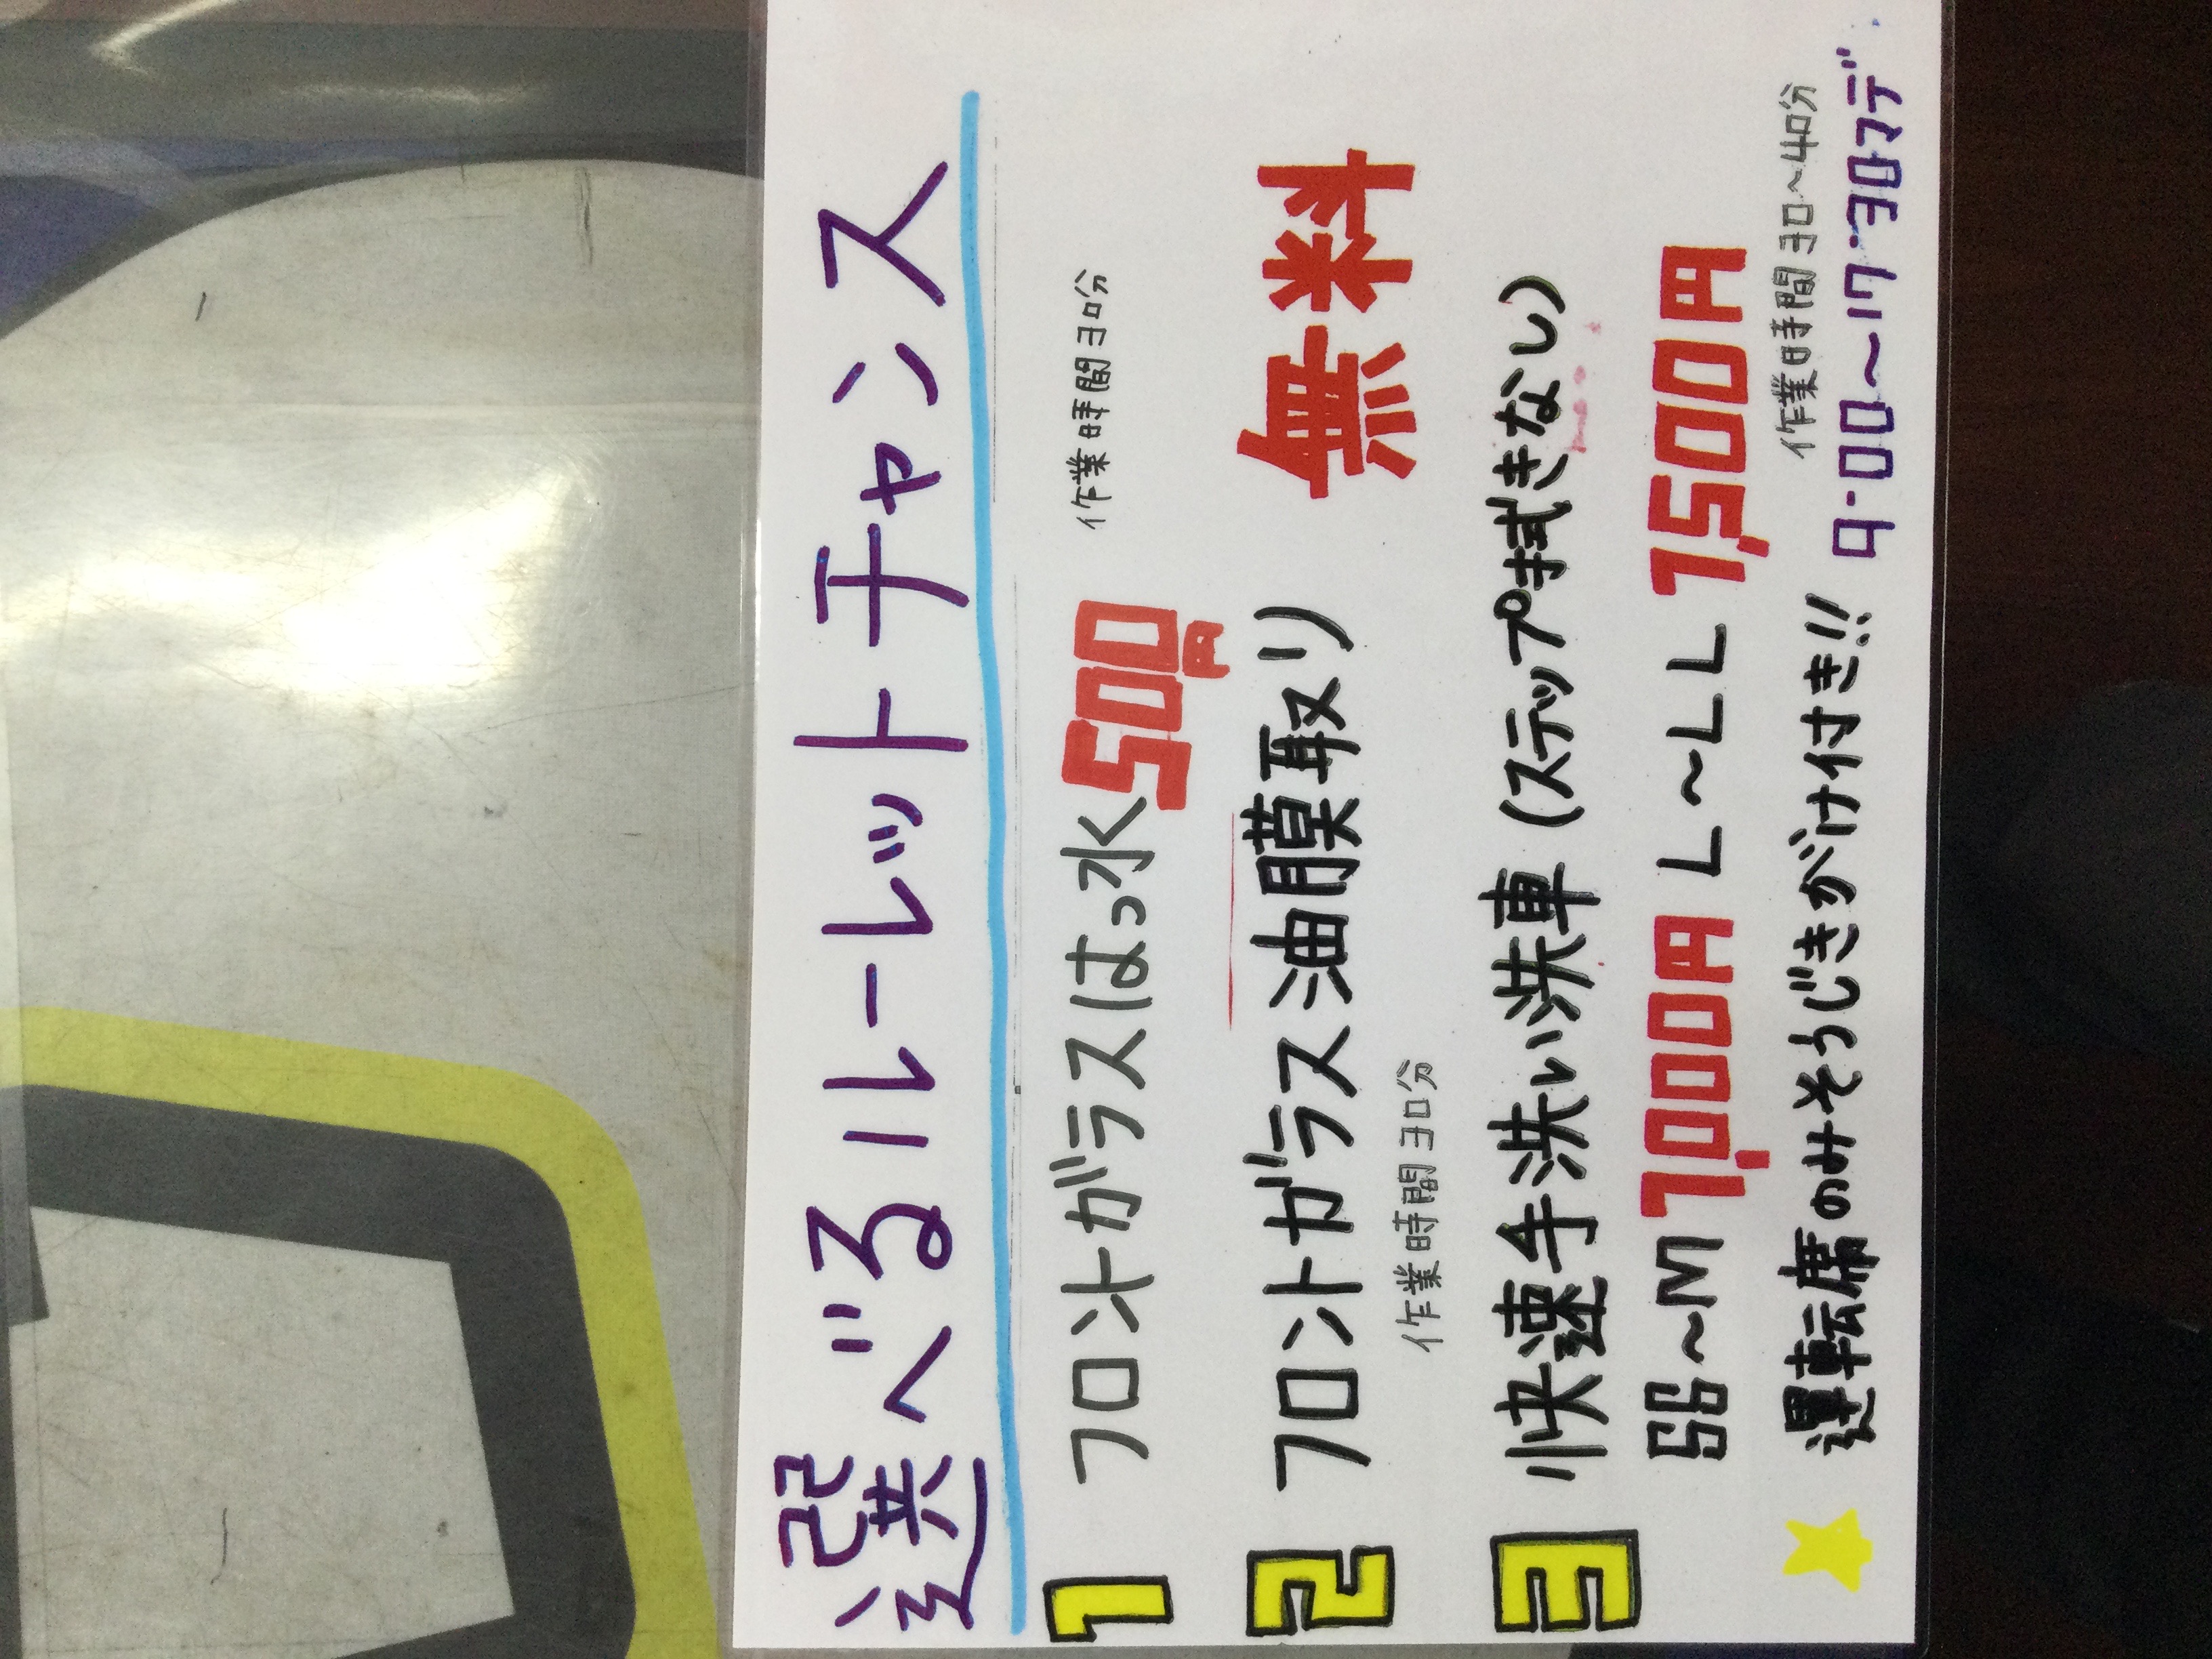 選べるルーレットチャンス
1 フロントガラスはっ水 500円 作業時間30分
2 フロントガラス油膜取り 無料
作業時間30分
3 快速手洗い洗車 (ステップ手拭きなし)
SS~M 1,000円 L~LL 1,500円
作業時間30~40分
運転席のみそうじきがけ付き!! 9:00~17:30マデ